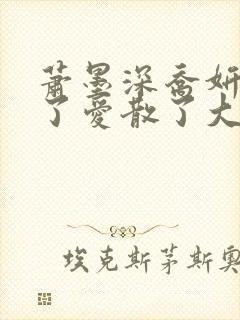 萧墨深乔妍
了爱散了大
埃克斯茅斯奥